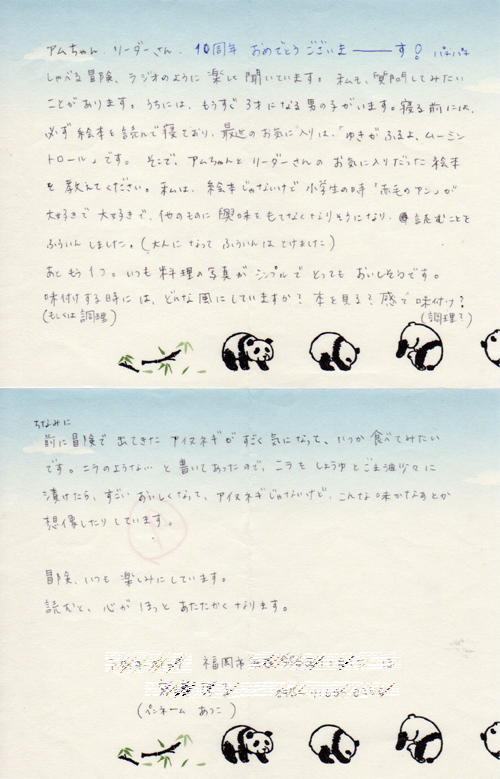 アムちゃん、リーダーさん、10周年 おめでとう ございま――す! パチパチ
しゃべる冒険、ラジオのように楽しく聞いています。私も、質問してみたい
ことがあります。うちには、もうすぐ3才になる男の子がいます。寝る前には、
必ず絵本を読んで寝ており、最近のお気に入りは、「ゆきがふるよ、ムーミン
トロール」です。そこで、アムちゃんとリーダーさんのお気に入りだった絵本
を教えてください。私は、絵本じゃないけど小学生の時「赤毛のアン」が
大好きで大好きで、他のものに興味をもてなくなりそうになり、読むことを
ふういんしました。(大人になってふういんはとけました)
あともう1つ。いつも料理の写真がシンプルでとってもおいしそうです。
味付けする時には、どんな風にしていますか?本を見る?感で味付け?
(もしくは調理) (調理?)
ちなみに
前に冒険で出てきたアイヌネギがすごく気になって、いつか食べてみたい
です。ニラのようなないと書いてあったので、ニラをしょうゆとごま油少々に
漬けたら、すごいおいしくなって、アイヌネギじゃないけど、こんな味かなぁとか
想像したりしています。
冒険、いつも楽しみにしています。
読むと、心がほっとあたたかくなります。
福岡市
(ペンネーム あつこ)